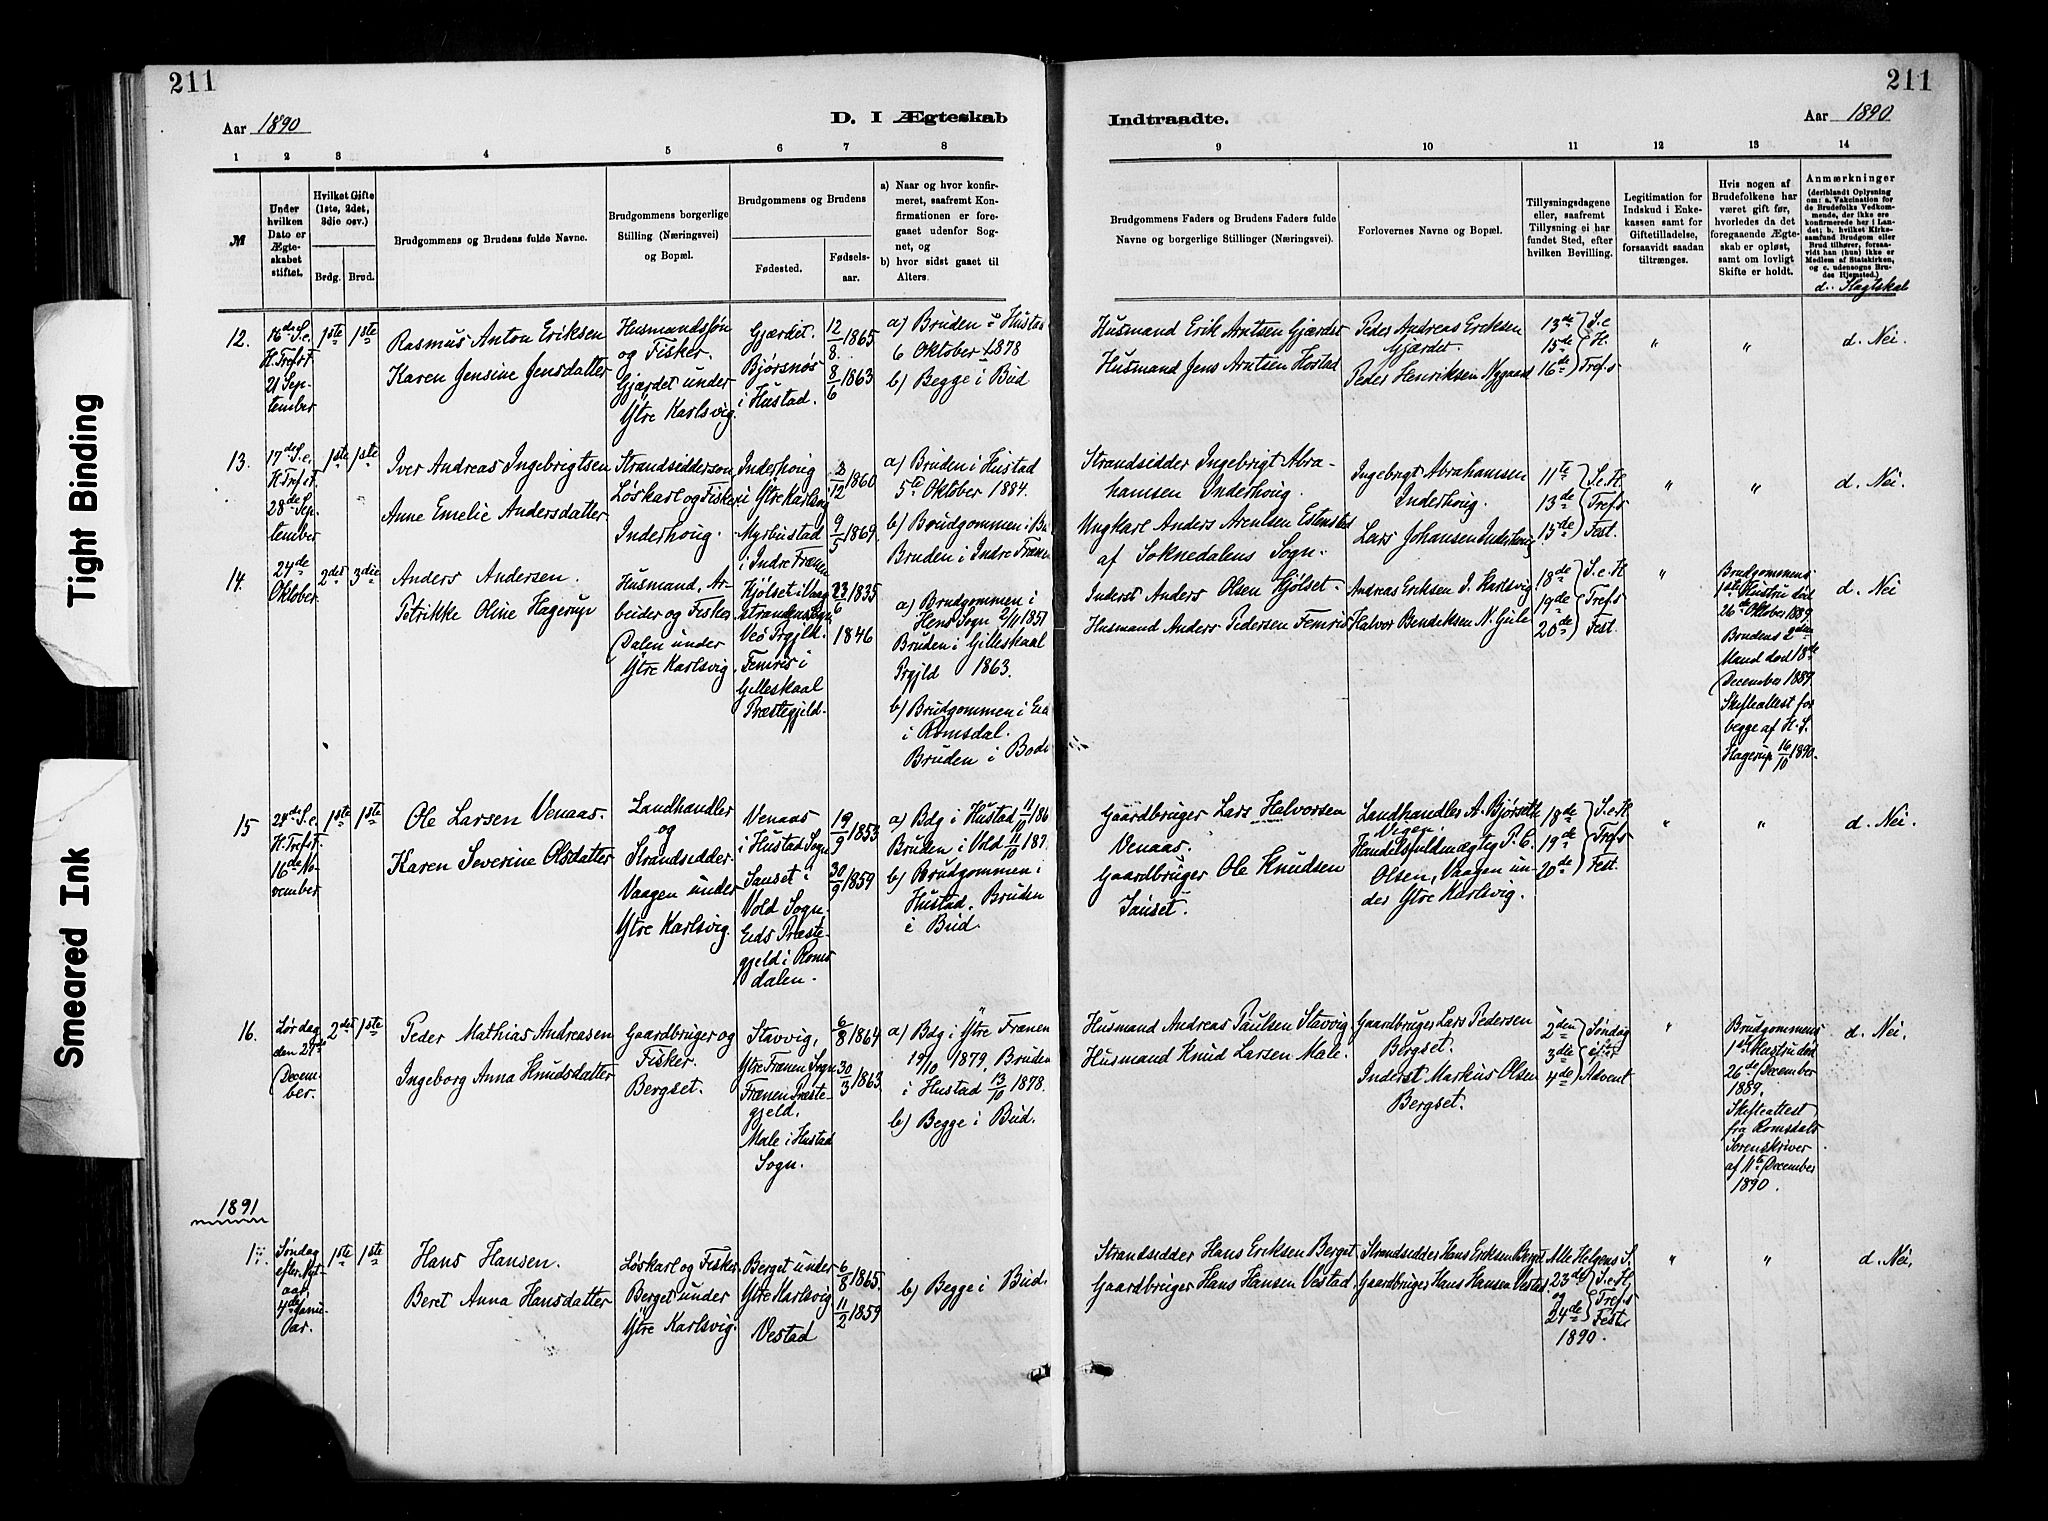 211
211
Aar 1890
D. I Ægteskab
Indtraadte.
Aar 1890
1 2 3 4 5 6 7 8
9 10 11 12 13 14
№
Under hvilken Dato er Ægteskabet stiftet.
Hvilket Gifte (1ste, 2det, 3die osv.)
Brdg. Brud.
Brudgommens og Brudens fulde Navne.
Brudgommens borgerlige Stilling (Næringsvei) og Bopæl.
Brudgommens og Brudens
Fødested.
Fødsels-aar.
a) Naar og hvor konfir-
meret, saafremt Kon-
firmationen er fore-
gaaet udenfor Sog-
net, og
b) hvor sidst gaaet til
Alters.
Brudgommens Faders og Brudens Faders fulde
Navne og borgerlige Stillinger (Næringsvei).
Forlovernes Navne og Bopæl.
Tillysningsdagene
eller, saafremt
Tillysning ei har
fundet Sted, efter
hvilken Bevilling.
Legitimation for
Indskud i Enke-
kassen samt for
Giftetilladelse,
forsaavidt saadan
tiltrænges.
Hvis nogen af
Brudefolkene har
været gift før,
hvorledes da det
foregaaende Ægte-
skab er opløst,
samt om lovligt
Skifte er holdt.
Anmærkninger
(deriblandt Oplysning
om: a. Vakcination for
de Brudefolks Vedkom-
mende, der ikke ere
konfirmerede her i Lan-
det; b. hvilket Kirke-
samfund Brudgom eller
Brud tilhører, forsaa-
vidt han (hun) ikke er
Medlem af Statskirken,
og c. udensogns Bru-
des Hjemsted.)
d. Slægtskab
12.
16de S. e.
H. Trefst.
21 Sep-
tember
1ste 1ste
Rasmus Anton Eriksen
Karen Jensine Jensdatter
Husmandssøn
og Fisker.
Gjærdet under
Ytre Karlsvig.
Gjærdet.
Bjørsnøs
i Hustad.
12/8 1865
8/6 1863
a) Bruden i Hustad
6 Oktober 1878
b) Begge i Bud
Husmand Erik Arntsen Gjærdet
Husmand Jens Arntsen Hostad
Peder Andreas Eriksen
Gjærdet.
Peder Henriksen Nygaard
13de S. e.
15de H.
16de Tref.s
"
"
d. Nei.
13.
17de S. e.
H. Trefst.
28de Sep-
tember
1ste 1ste
Iver Andreas Ingebrigtsen
Anne Emelie Andersdatter
Strandsidderson
Løskarl og Fisker.
Inderhoug.
Inderhoug
i Ytre Karlsvig
Myrbustad
i Indre Frænen
3/12 1860
9/5 1869.
a) Bruden i Hustad
5te Oktober 1884.
b) Brudgommen i Bu
Bruden i Indre Frænen
Strandsidder Ingebrigt Abra-
hamsen Inderhoug.
Ungkarl Anders Arentsen Estensted
af Soknedalens Sogn.
Ingebrigt Abrahamsen
Inderhoug.
Lars Johansen Inderhoug
11te S. e. H.
13de Tref.s
15de Fest.
"
"
d. Nei.
14.
24de
Oktober.
2det 3die
Anders Andersen.
Petrikke Oline Hagerup
Husmand, Ar-
beider og Fisker
Dalen under
Ytre Karlsvig
Hjølset i Vaag
Strandens Sogn
Veø Prgjld.
Femris i
Gilleskaal
Præstegjeld.
23/6 1835
1846
a) Brudgommen i
Hens Sogn 2/11 1851
Bruden i Gilleskaal
Prgjld 1863.
b) Brudgommen i
i Romsdal.
Bruden i Bod
Inderst Anders Olsen Hjølset
Husmand Anders Pedersen Femris
Andreas Eriksen I. Karlsvig
Halvor Bendiksen N. Gule
18de S. e. H
19de Tref.s
20de Fest.
"
Brudgommens
1ste Hustru død
26de Oktober 1889.
Brudens 2den
Mand død 18de
December 1889.
Skifteattest for
begge af H. S.
Hagerup 16/10 1890.
d. Nei
15
24de S. e.
H. Trefst.
16de No-
vember
1ste 1ste
Ole Larsen Venaas.
Karen Severine Olsdatter
Landhandler
og
Strandsidder
Vaagen under
Ytre Karlsvig.
Venaas
i Hustad Sogn
Sauset i
Vold Sogn.
Eids Præste-
gjeld i Roms
dalen.
19/9 1853
30/9 1859
a) Bdg i Hustad 11/10 186
Bruden i Vold 11/10 187
b) Brudgommen i
Hustad. Bruden
i Bud.
Gaardbruger Lars Halvorsen
Venaas.
Gaardbruger Ole Knudsen
Sauset.
Landhandler A. Bjørseth
Handelsfuldmægtig P. C.
Olsen, Vaagen un-
der Ytre Karlsvig.
18de S. e. H
19de Tref.s
20de Fest.
"
"
d. Nei.
16.
Lørdag
den 27de
Decem-
ber.
2det 1ste
Peder Mathias Andreasen
Ingeborg Anna Knudsdatter
Gaardbruger og
Fisker.
Bergset.
Stavvig,
Ytre Frænen Sogn
Frænen Præste-
gjeld.
Male i Hustad
Sogn.
6/8 1864
30/3 1863
a) Bdg. i Ytre Frænen
19/10 1879, Bruden
i Hustad 13/10 1878.
b) Begge i Bud.
Husmand Andreas Paulsen Stavvig
Husmand Knud Larsen Male.
Gaardbruger Lars Pedersen
Bergset.
Inderst Markus Olsen
Bergset.
2den Søndag
3die i
4de Advent
"
Brudgommens
1ste Hustru død
26de December
1889.
Skifteattest
fra Romsdals
Sorenskriver
af 11te December
1890.
d. Nei.
1891
1.
Søndag
efter Nyt-
aar,
4de Janu-
ar.
1ste 1ste
Hans Hansen.
Beret Anna Hansdatter
Løskarl og Fisker
Berget under
Ytre Karlsvig.
Berget under
Ytre Karlsvig
Vestad
6/8 1865.
11/2 1859
b) Begge i Bud.
Strandsidder Hans Eriksen Berget
Gaardbruger Hans Hansen Vestad
Strandsidder Hans Eriksen Berget
Gaardbruger Hans Hansen Vestad.
Alle Helgens S.
23de S. e. H
og Tref.s
24de Feste
1890.
"
"
d. Nei.
Tight Binding
Smeared Ink